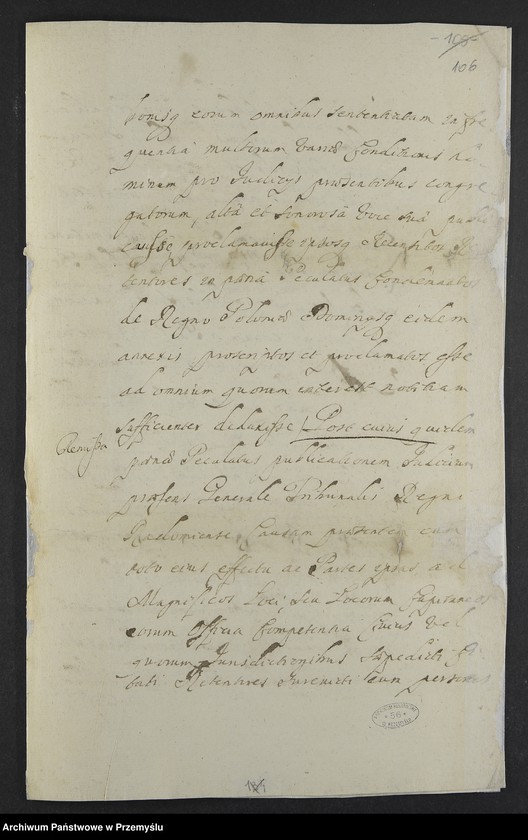 106
bonisq eorum omnibus sententiatum in se
quentiâ multorum variæ Conditionis ho
minum pro Judicijs præsentibus congre
gatorum, altâ et sonorosâ voce suâ publi
casse, proclamavisse ipsosq Recentores De
tentores in pœnâ Peculatus Condemnatos
de Regno Poloniæ Dominijsq eidem
annexis proscriptos et proclamatos esse
ad omnium quorum interest notitiam
sufficienter deduxisse Post cuius quidem
Remissa
pœnæ Peculatus publicationem Judicium
præsens Generale Tribunalis Regni
Radomiense, Causam præsentem cum
toto eius effectu ac Partes ipsas ad
Magnificos Loci, seu Locorum Capitaneos
eorum Officia Competentia Cuius vel
quorum Jurisdictionibus Supradicti
bati Retentores Inventi cum
56
Archiwum Państwowe w Przemyślu